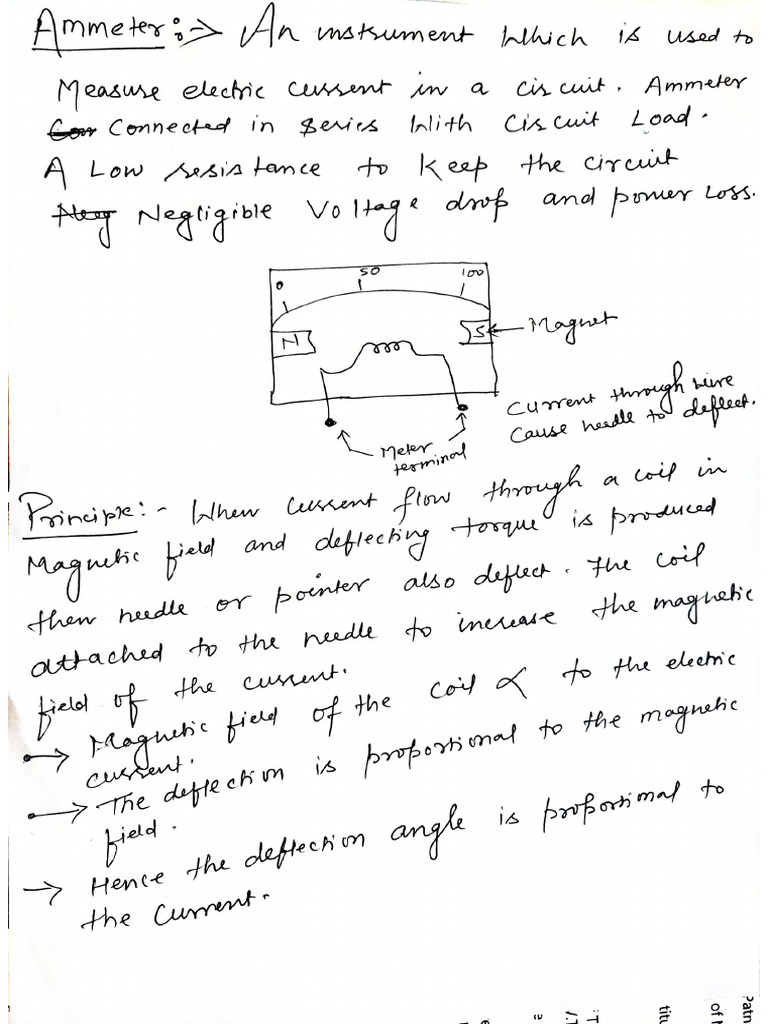 Ammeter:⇒ An instrument which is used to
Measure electric current in a circuit. Ammeter
Connected in series with circuit Load.
A Low resistance to Keep the circuit
Negligible Voltage drop and power Loss.
0 50 100
N S Magnet
Current through wire
Cause needle to deflect.
Meter
terminal
Principle:- When current flow through a coil in
Magnetic field and deflecting torque is produced
then needle or pointer also deflect. The coil
attached to the needle to increase the magnetic
field of the current.
→ Magnetic field of the coil ∝ to the electric
current.
→ The deflection is proportional to the magnetic
field.
→ Hence the deflection angle is proportional to
the current.
Patn
of
titu